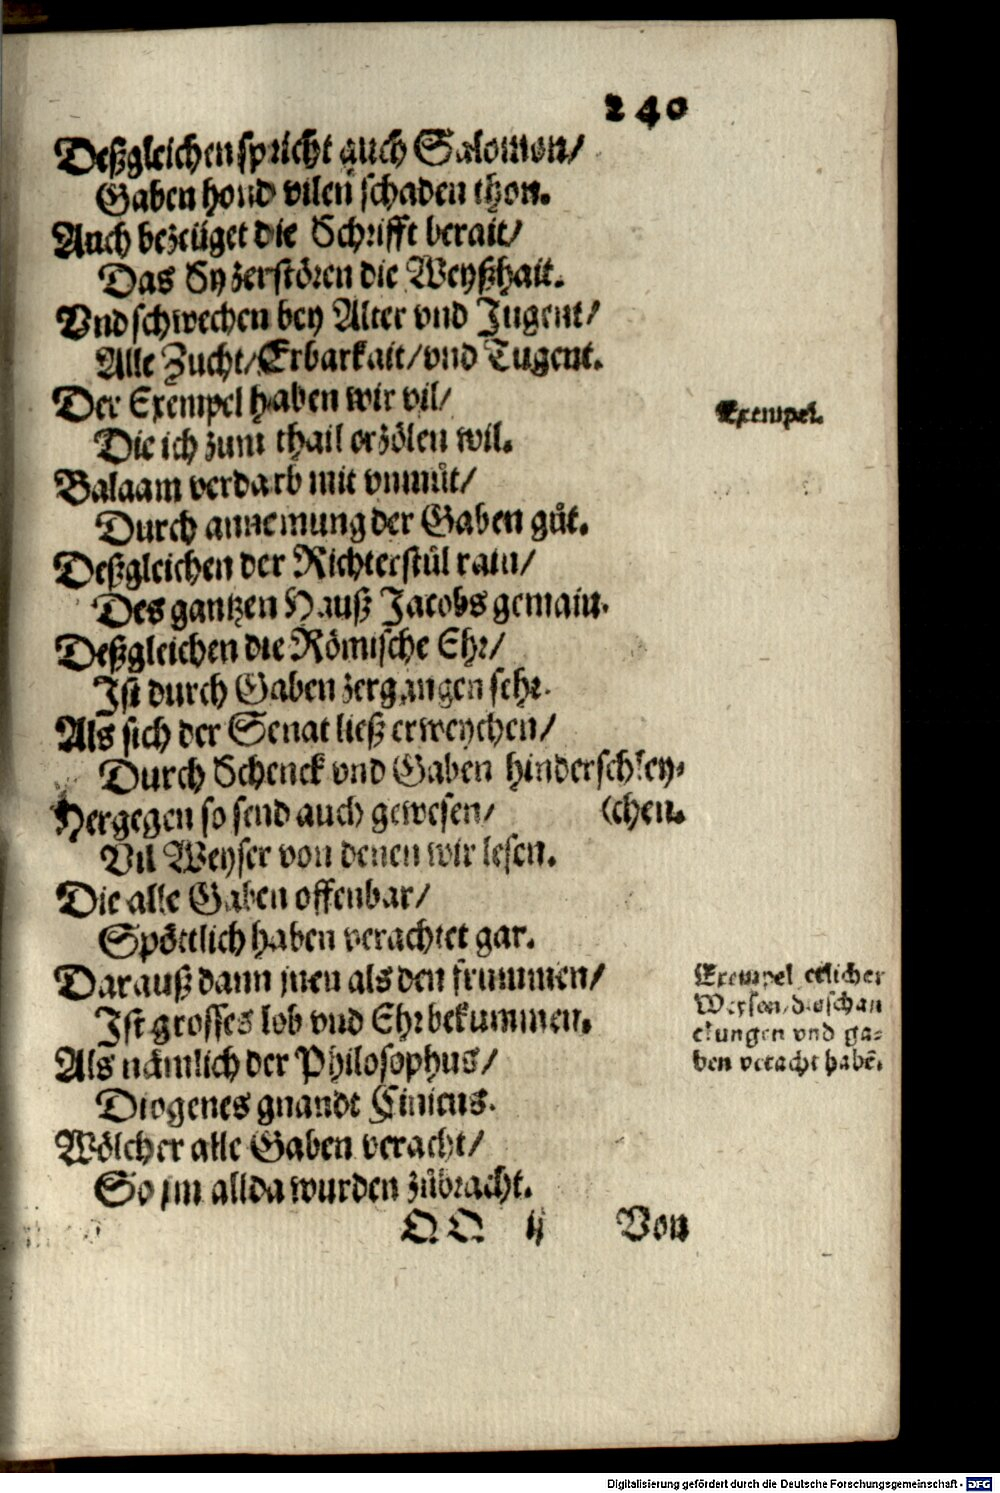 240
Deßgleichen spricht auch Salomon/
Gaben hond vilen schaden thon.
Auch bezeüget die Schrifft berait/
Das Sy zerstören die Weyßhait.
Vnd schwechen bey Alter vnd Jugent/
Alle Zucht/Erbarkait/vnd Tugent.
Der Exempel haben wir vil/
Exempel.
Die ich zum thail erzölen wil.
Balaam verdarb mit vnmůt/
Durch annemung der Gaben gůt.
Deßgleichen der Richterstůl rain/
Des gantzen Hauß Jacobs gemain.
Deßgleichen die Römische Ehr/
Ist durch Gaben zergangen sehr.
Als sich der Senat ließ erweychen/
Durch Schenck vnd Gaben hinderschley-
Hergegen so send auch gewesen/ (chen.
Vil Weyser von denen wir lesen.
Die alle Gaben offenbar/
Spöttlich haben verachtet gar.
Darauß dann jnen als den frummen/
Ist grosses lob vnd Ehr bekummen.
Als nämlich der Philosophus/
Exempel etlicher
Weysen/die schan
ckungen vnd ga-
ben veracht habẽ.
Diogenes gnandt Cinicus.
Wölcher alle Gaben veracht/
So jm allda wurden zůbracht.
QQ ij Von
Digitalisierung gefördert durch die Deutsche Forschungsgemeinschaft - DFG